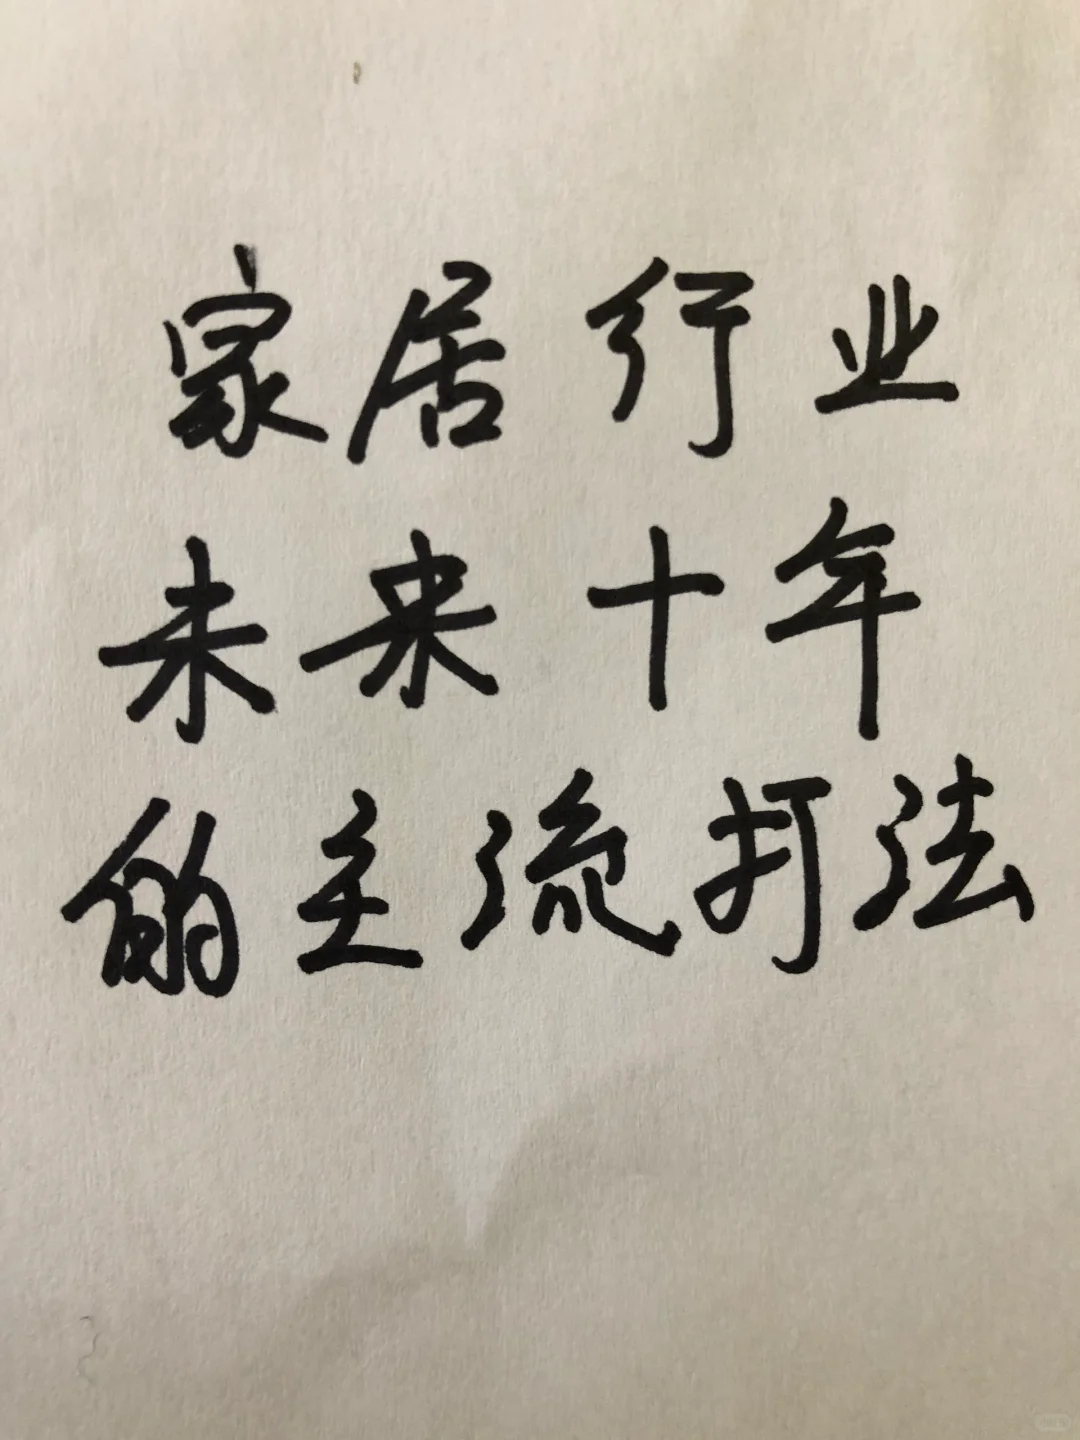 家居行业
未来十年
的主流打法